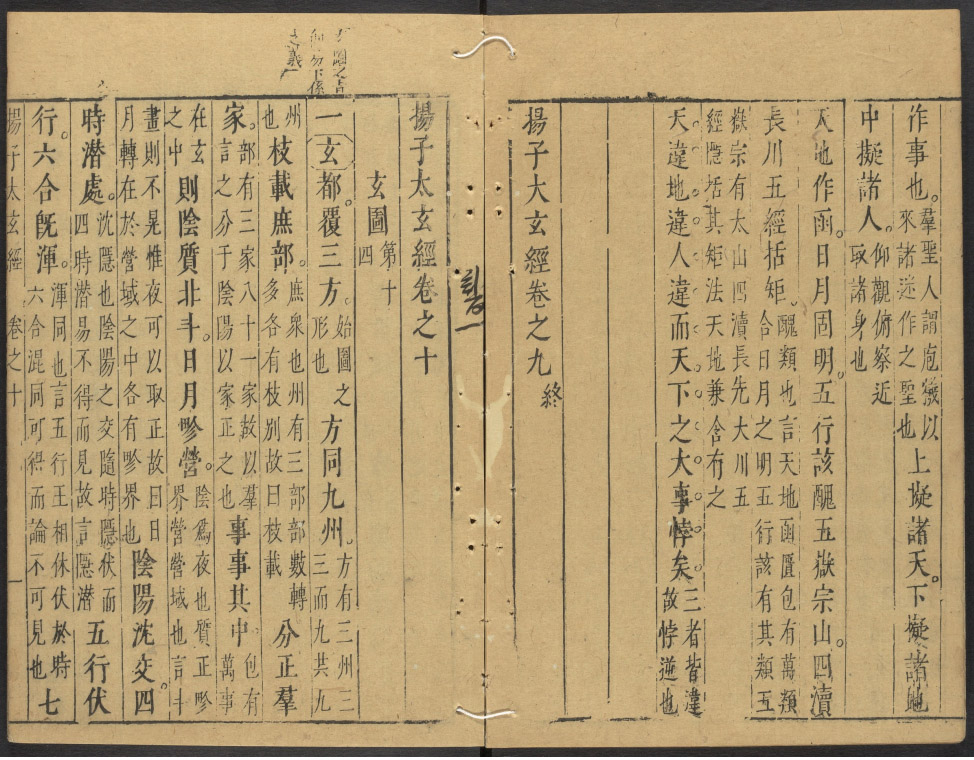 作事也羣聖人謂庖犧以來諸述作之聖也上擬諸天下擬諸地
中擬諸人仰觀俯察近取諸身也
天地作函日月固明五行該醜五嶽宗山四瀆
長川五經括矩醜類也言天地函匱包有萬類合日月之明五行該有其類五
嶽宗有太山四瀆長先大川五經隱括其矩法天地兼含有之
天違地違人違而天下之大事悖矣三者皆違故悖逆也
揚子太玄經卷之九 終
揚子太玄經卷之十
玄圖第十四
一玄都覆三方始圖之形也方同九州方有三州三三而九共九
州也枝載庶部庶衆也州有三部部數轉多各有枝別故曰枝載分正羣
家部有三家八十一家故以羣家言之分于陰陽以家正之也事事其中包有萬事
在玄之中則陰質北斗日月畛營陰爲夜也質正畛界營營域也言斗
晝則不晃惟夜可以取正故曰日月轉在於營域之中各有畛界也陰陽沈交四
時潜處沈隱也陰陽之交隨時隱伏而四時潜易不得而見故言隱潜五行伏
行六合旣渾渾同也言五行王相休伏於時六合混同可得而論不可見也七
揚子太玄經 卷之十 一